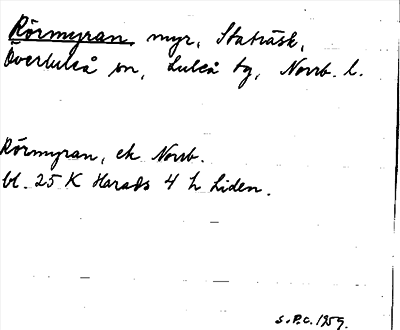 Rörmyran, myr, Statträsk,
Överluleå sn, Luleå tg, Norrb. l.
Rörmyran, ek Norrb.
bl. 25 K Harads 4 h Liden.
S.P.C. 1959.